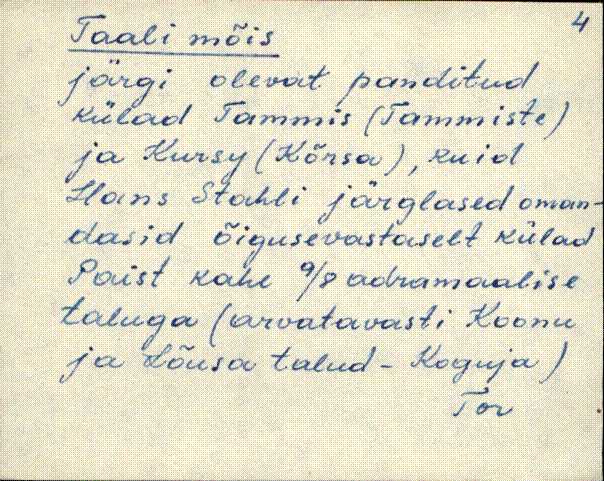 4
Taali mõis
järgi olevat panditud
külad Tammis (Tammiste)
ja Kursy (Kõrsa), kuid
Hans Stahli järglased oman-
dasid õigusevastaselt külad
Paist kahe 9/8 adramaalise
taluga (arvatavasti Koonu
ja Lõusa talud - Koguja)
Tor